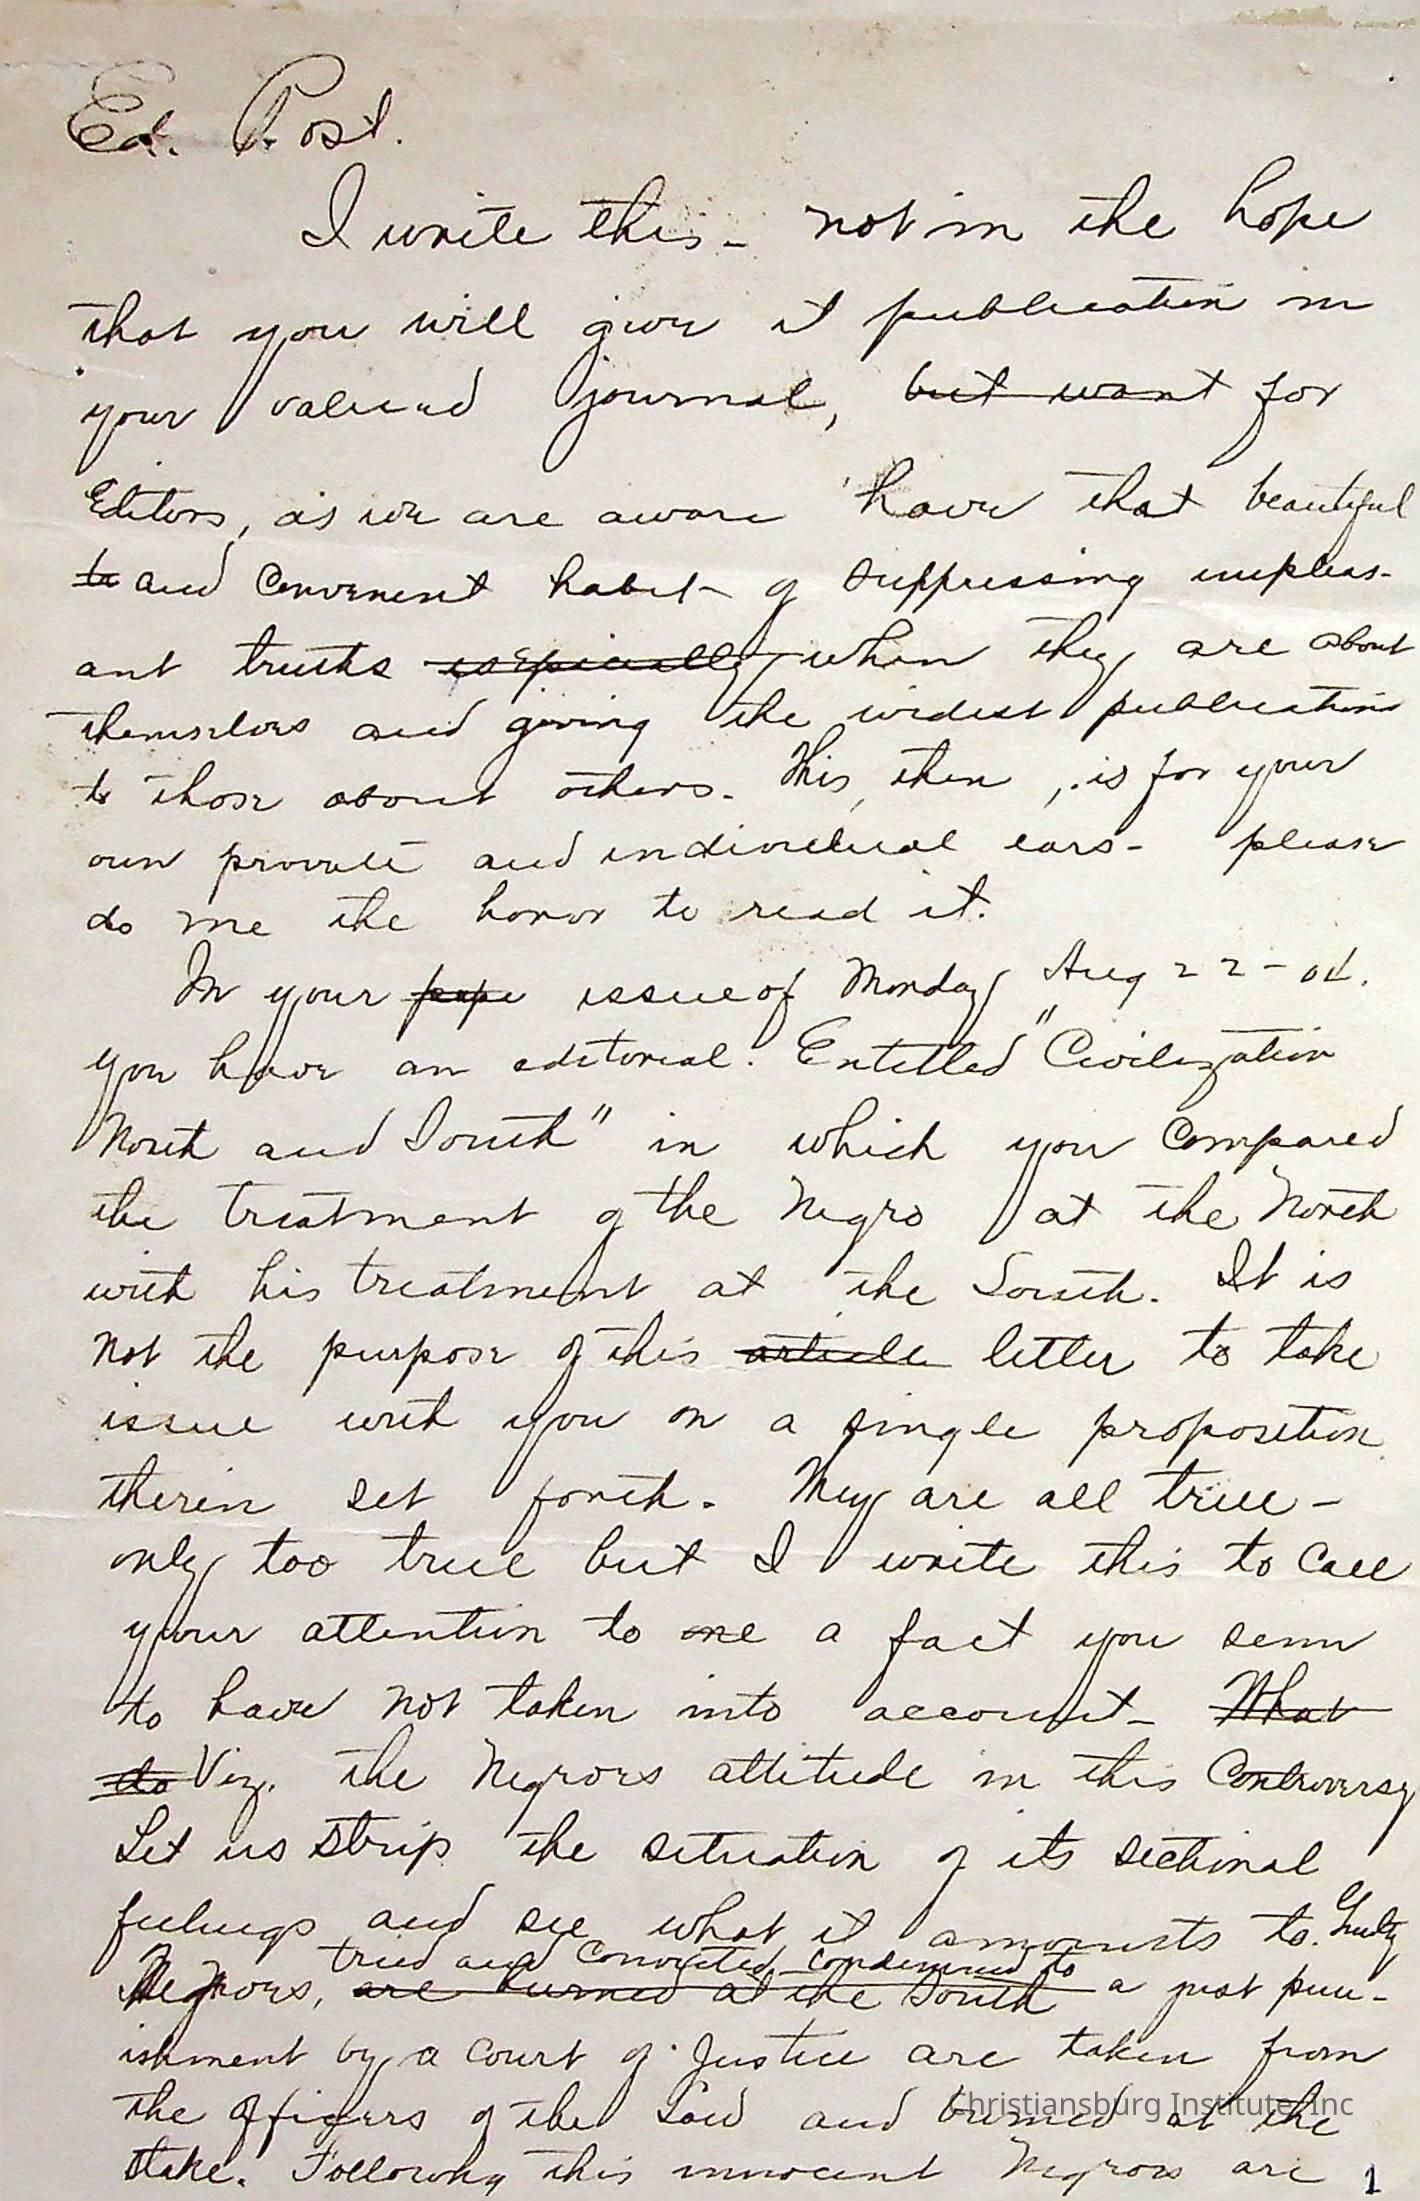 Ed. Post.
I write this - not in the hope
that you will give it publication in
your valued journal, but want for
Editors, as we are aware have that beautiful
to and convenient habit of suppressing unpleas-
ant truths especially when they are about
themselves and giving the widest publication
to those about others. This, then, is for your
own private and individual ears - please
do me the honor to read it.
In your pape issue of Monday Aug 22 - 04.
you have an editorial. Entitled "Civilization
North and South" in which you compared
the treatment of the Negro at the North
with his treatment at the South. It is
not the purpose of this article letter to take
issue with you on a single proposition
therein set forth. They are all true -
only too true but I write this to call
your attention to one a fact you seem
to have not taken into account - What
do Viz. the Negroes attitude in this Controversy
Let us strip the situation of its sectional
feelings and see what it amounts to. Guilty
tried and convicted, condemned to
Negroes, are burned at the South a just pun-
ishment by a court of Justice are taken from
the officers of the Law and burned at the
stake. Following this innocent Negroes are
1
Christiansburg Institute, Inc